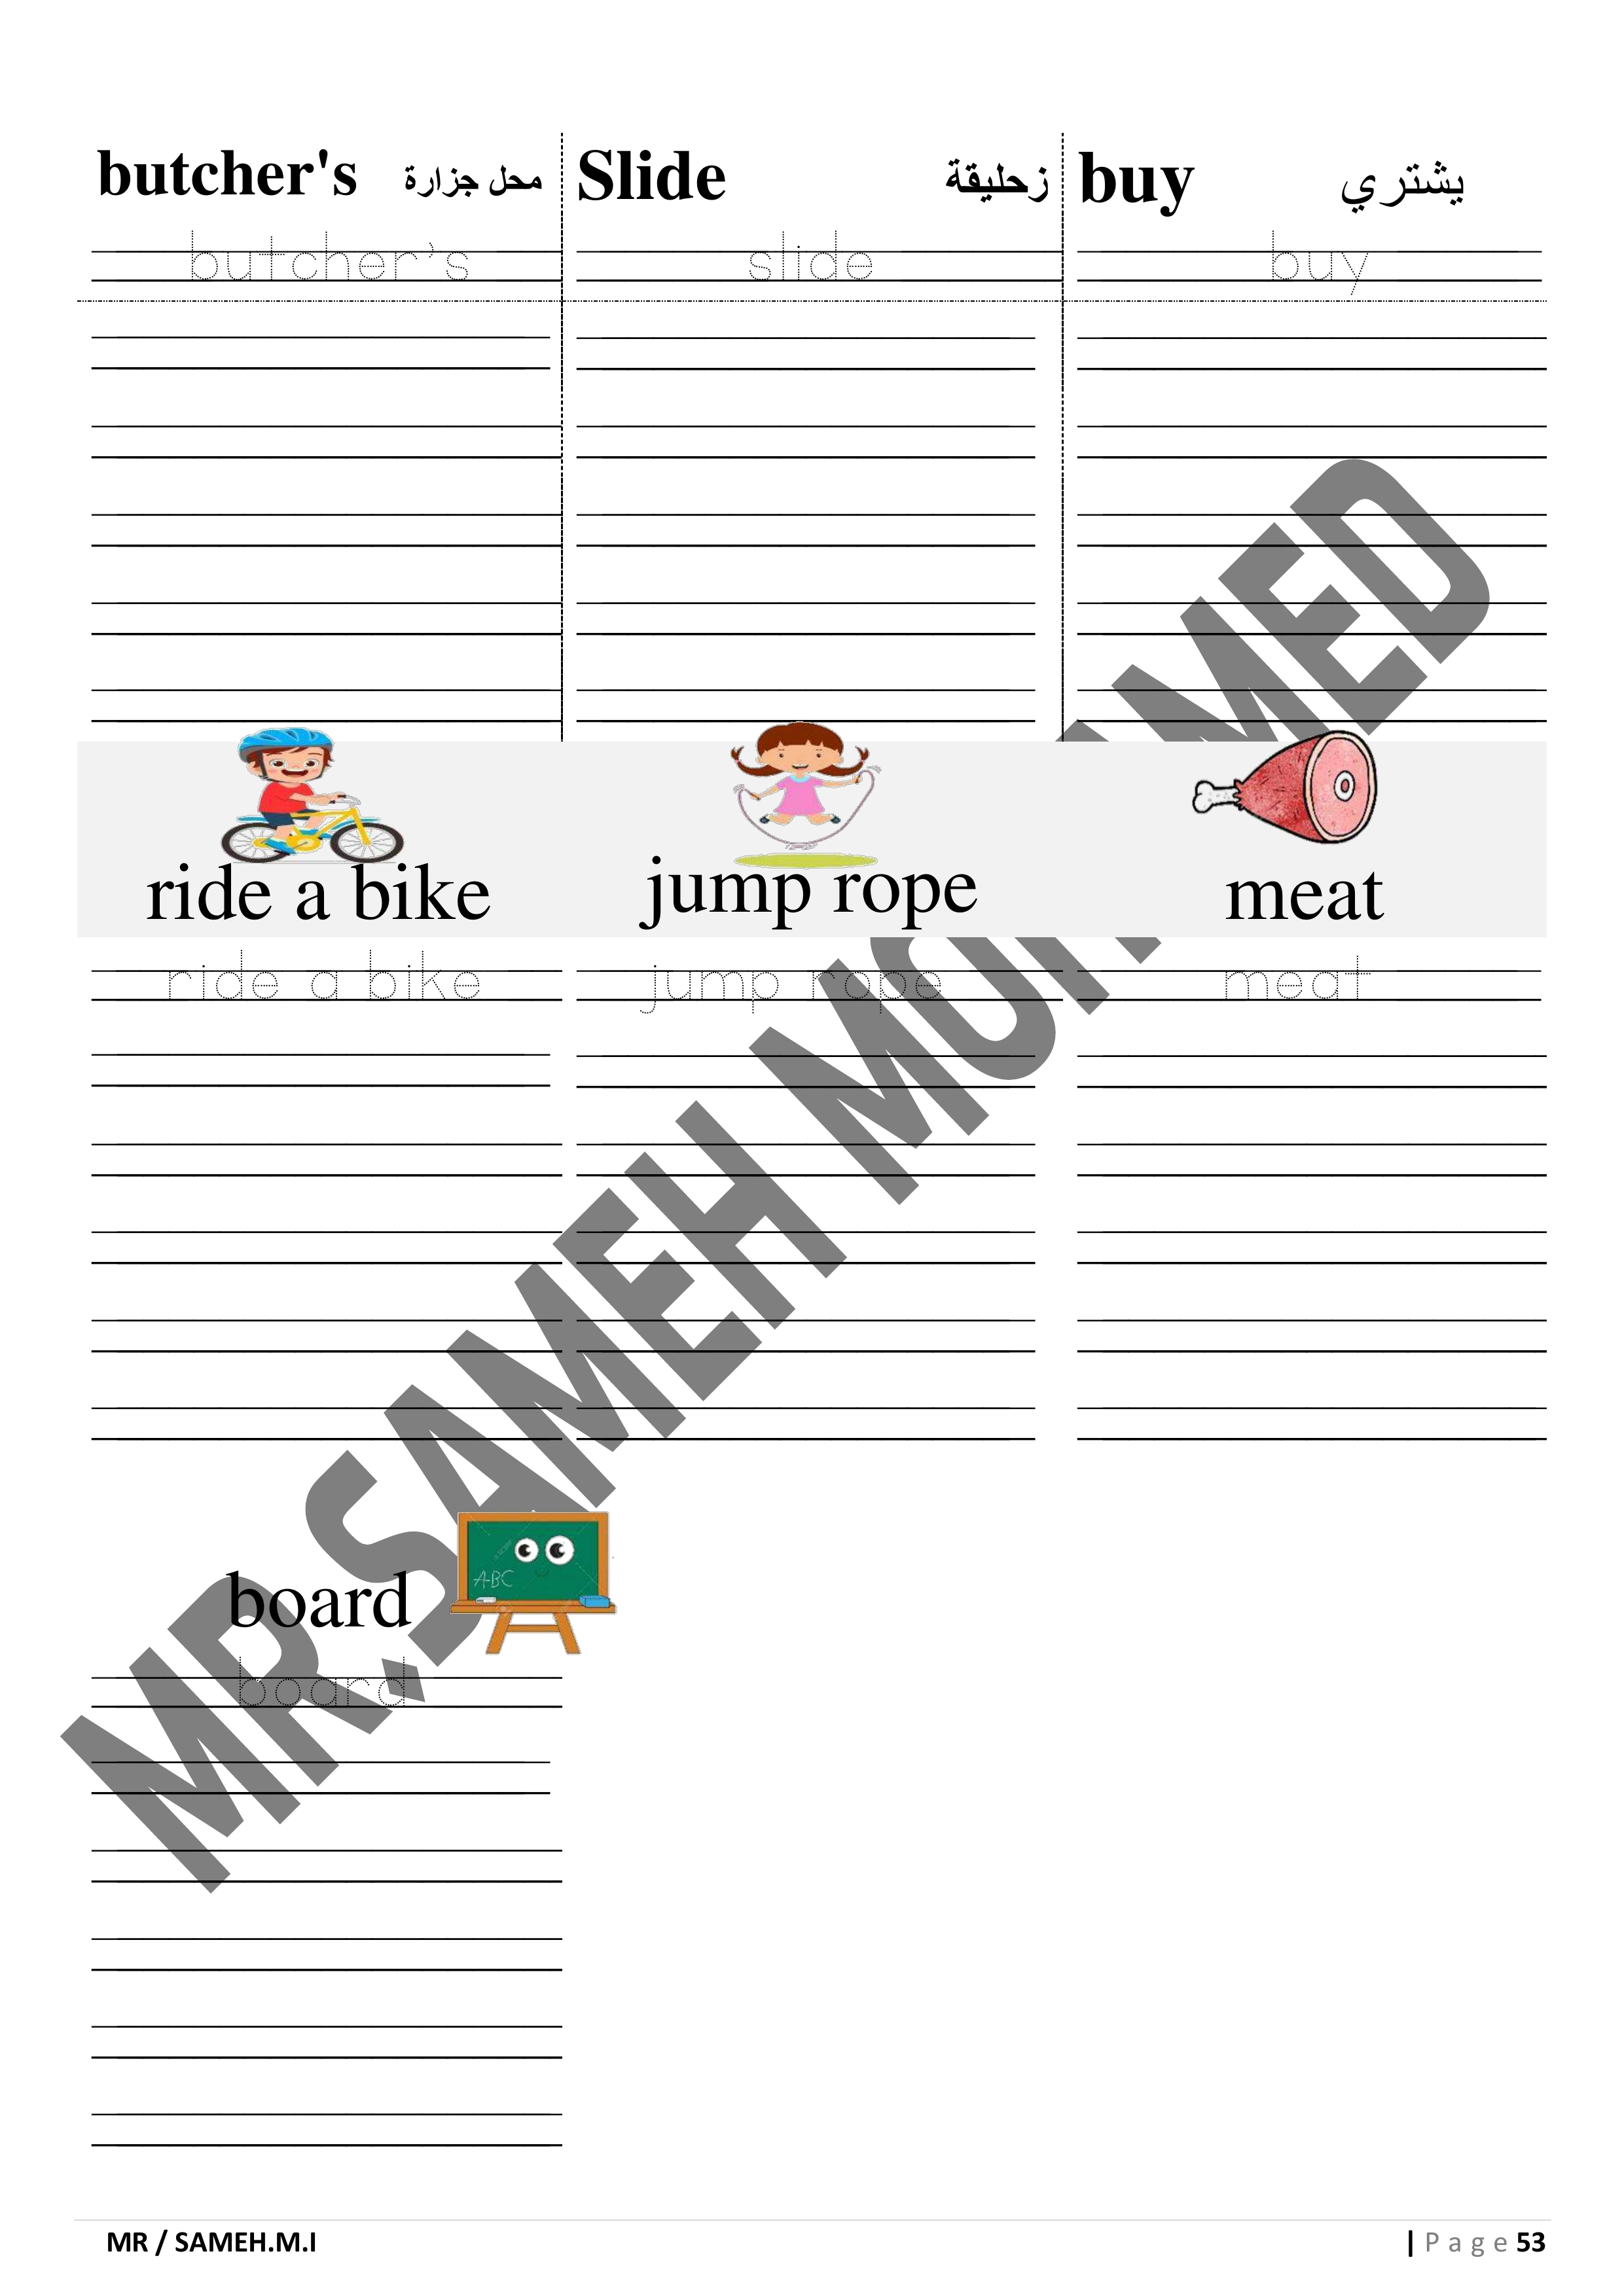 butcher's محل جزارة Slide زحليقة buy يشتري
butcher's slide buy
ride a bike jump rope meat
ride a bike jump rope meat
ABC
board
board
MR.SAMEH MOHAMED
MR / SAMEH.M.I | Page 53